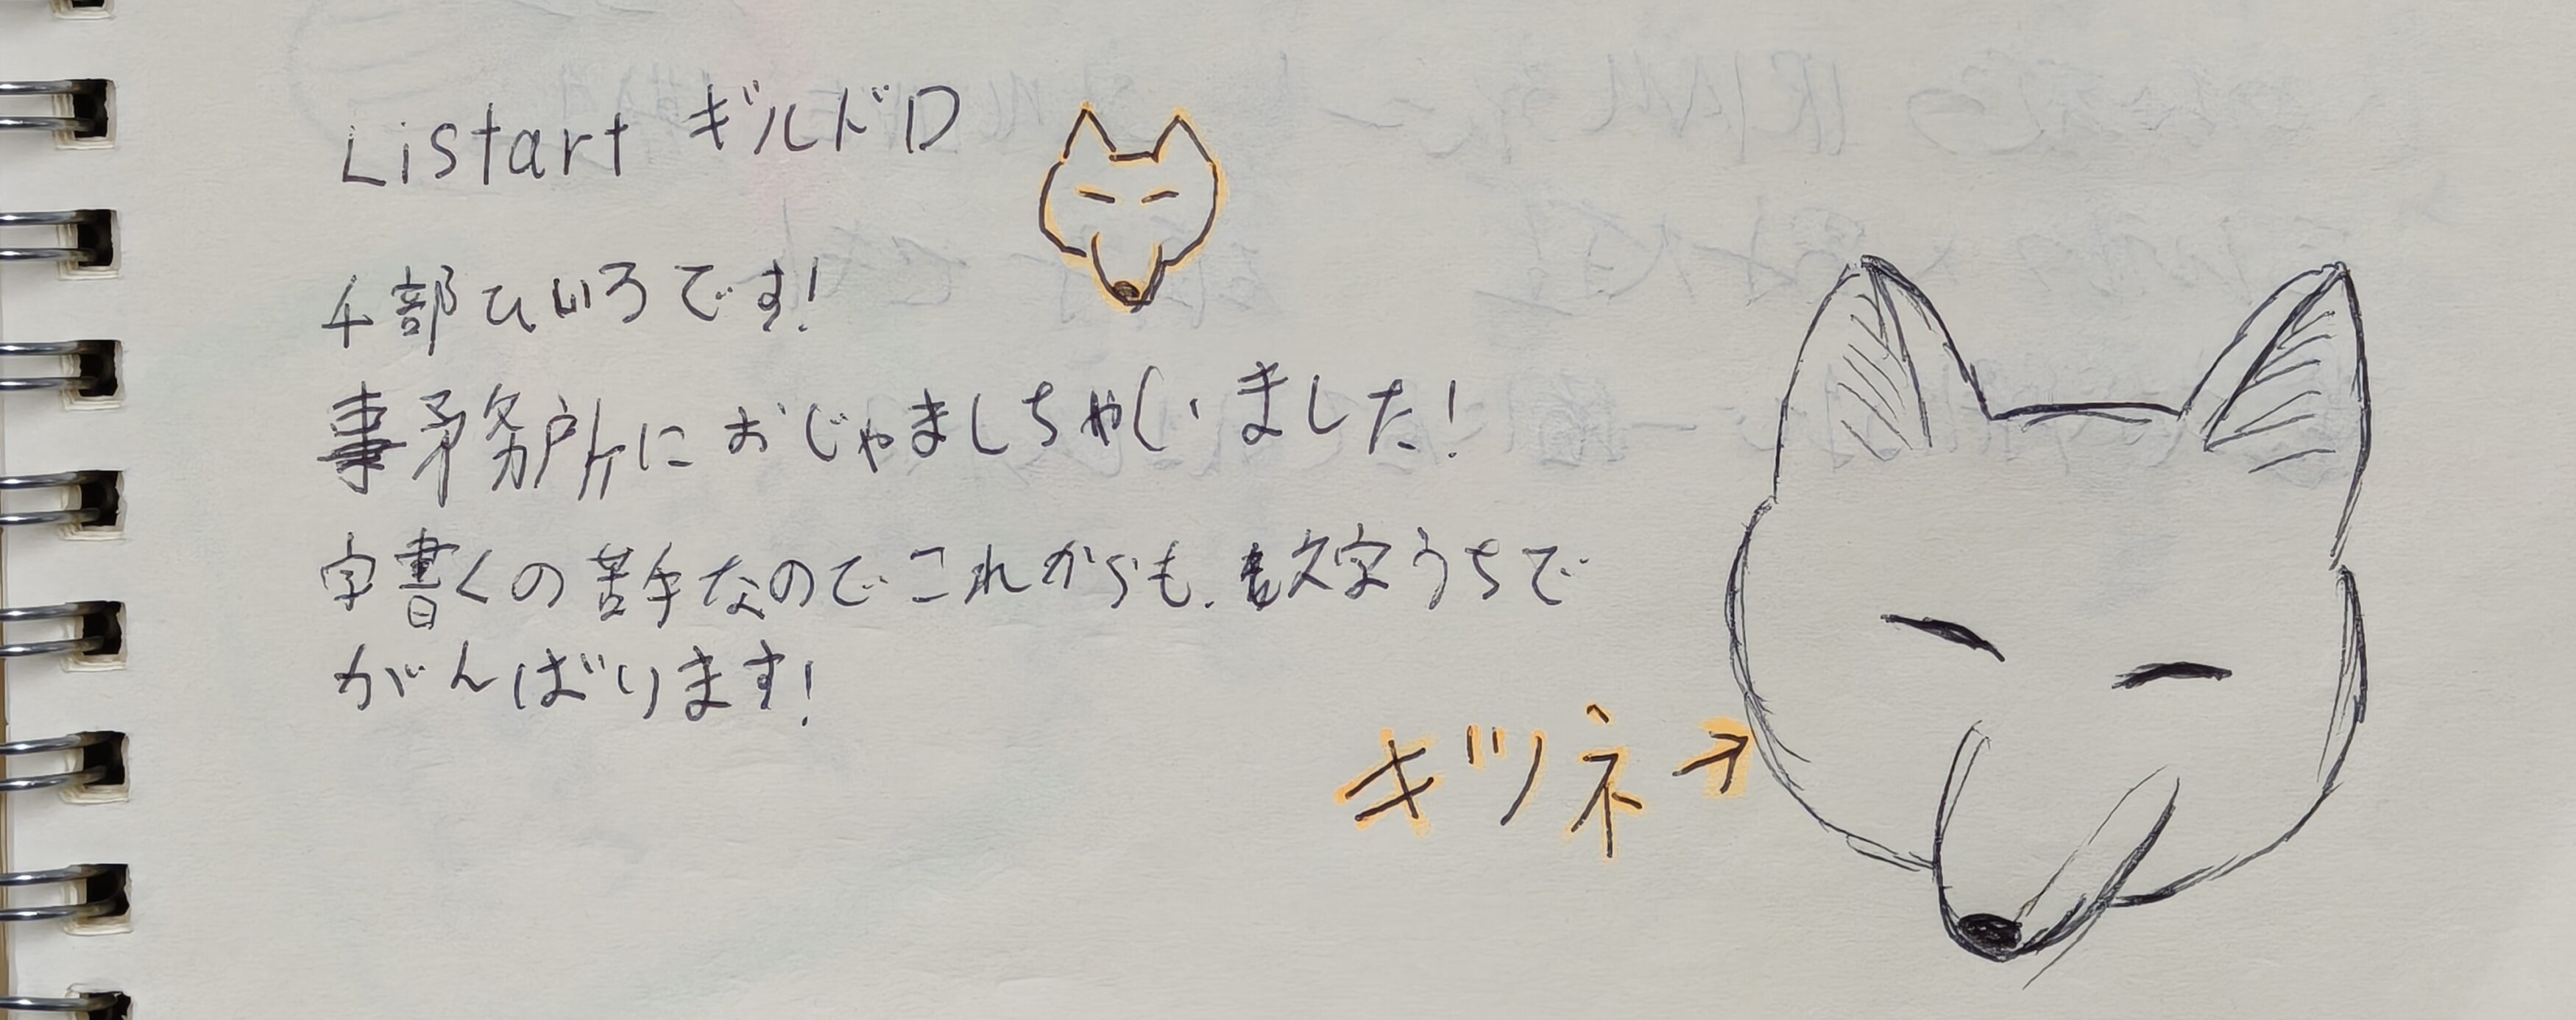 Listart ギルドD
千部ひいろです!
事務所におじゃましちゃいました!
字書くの苦手なのでこれからも、文字うちで
がんばります!
キツネ→